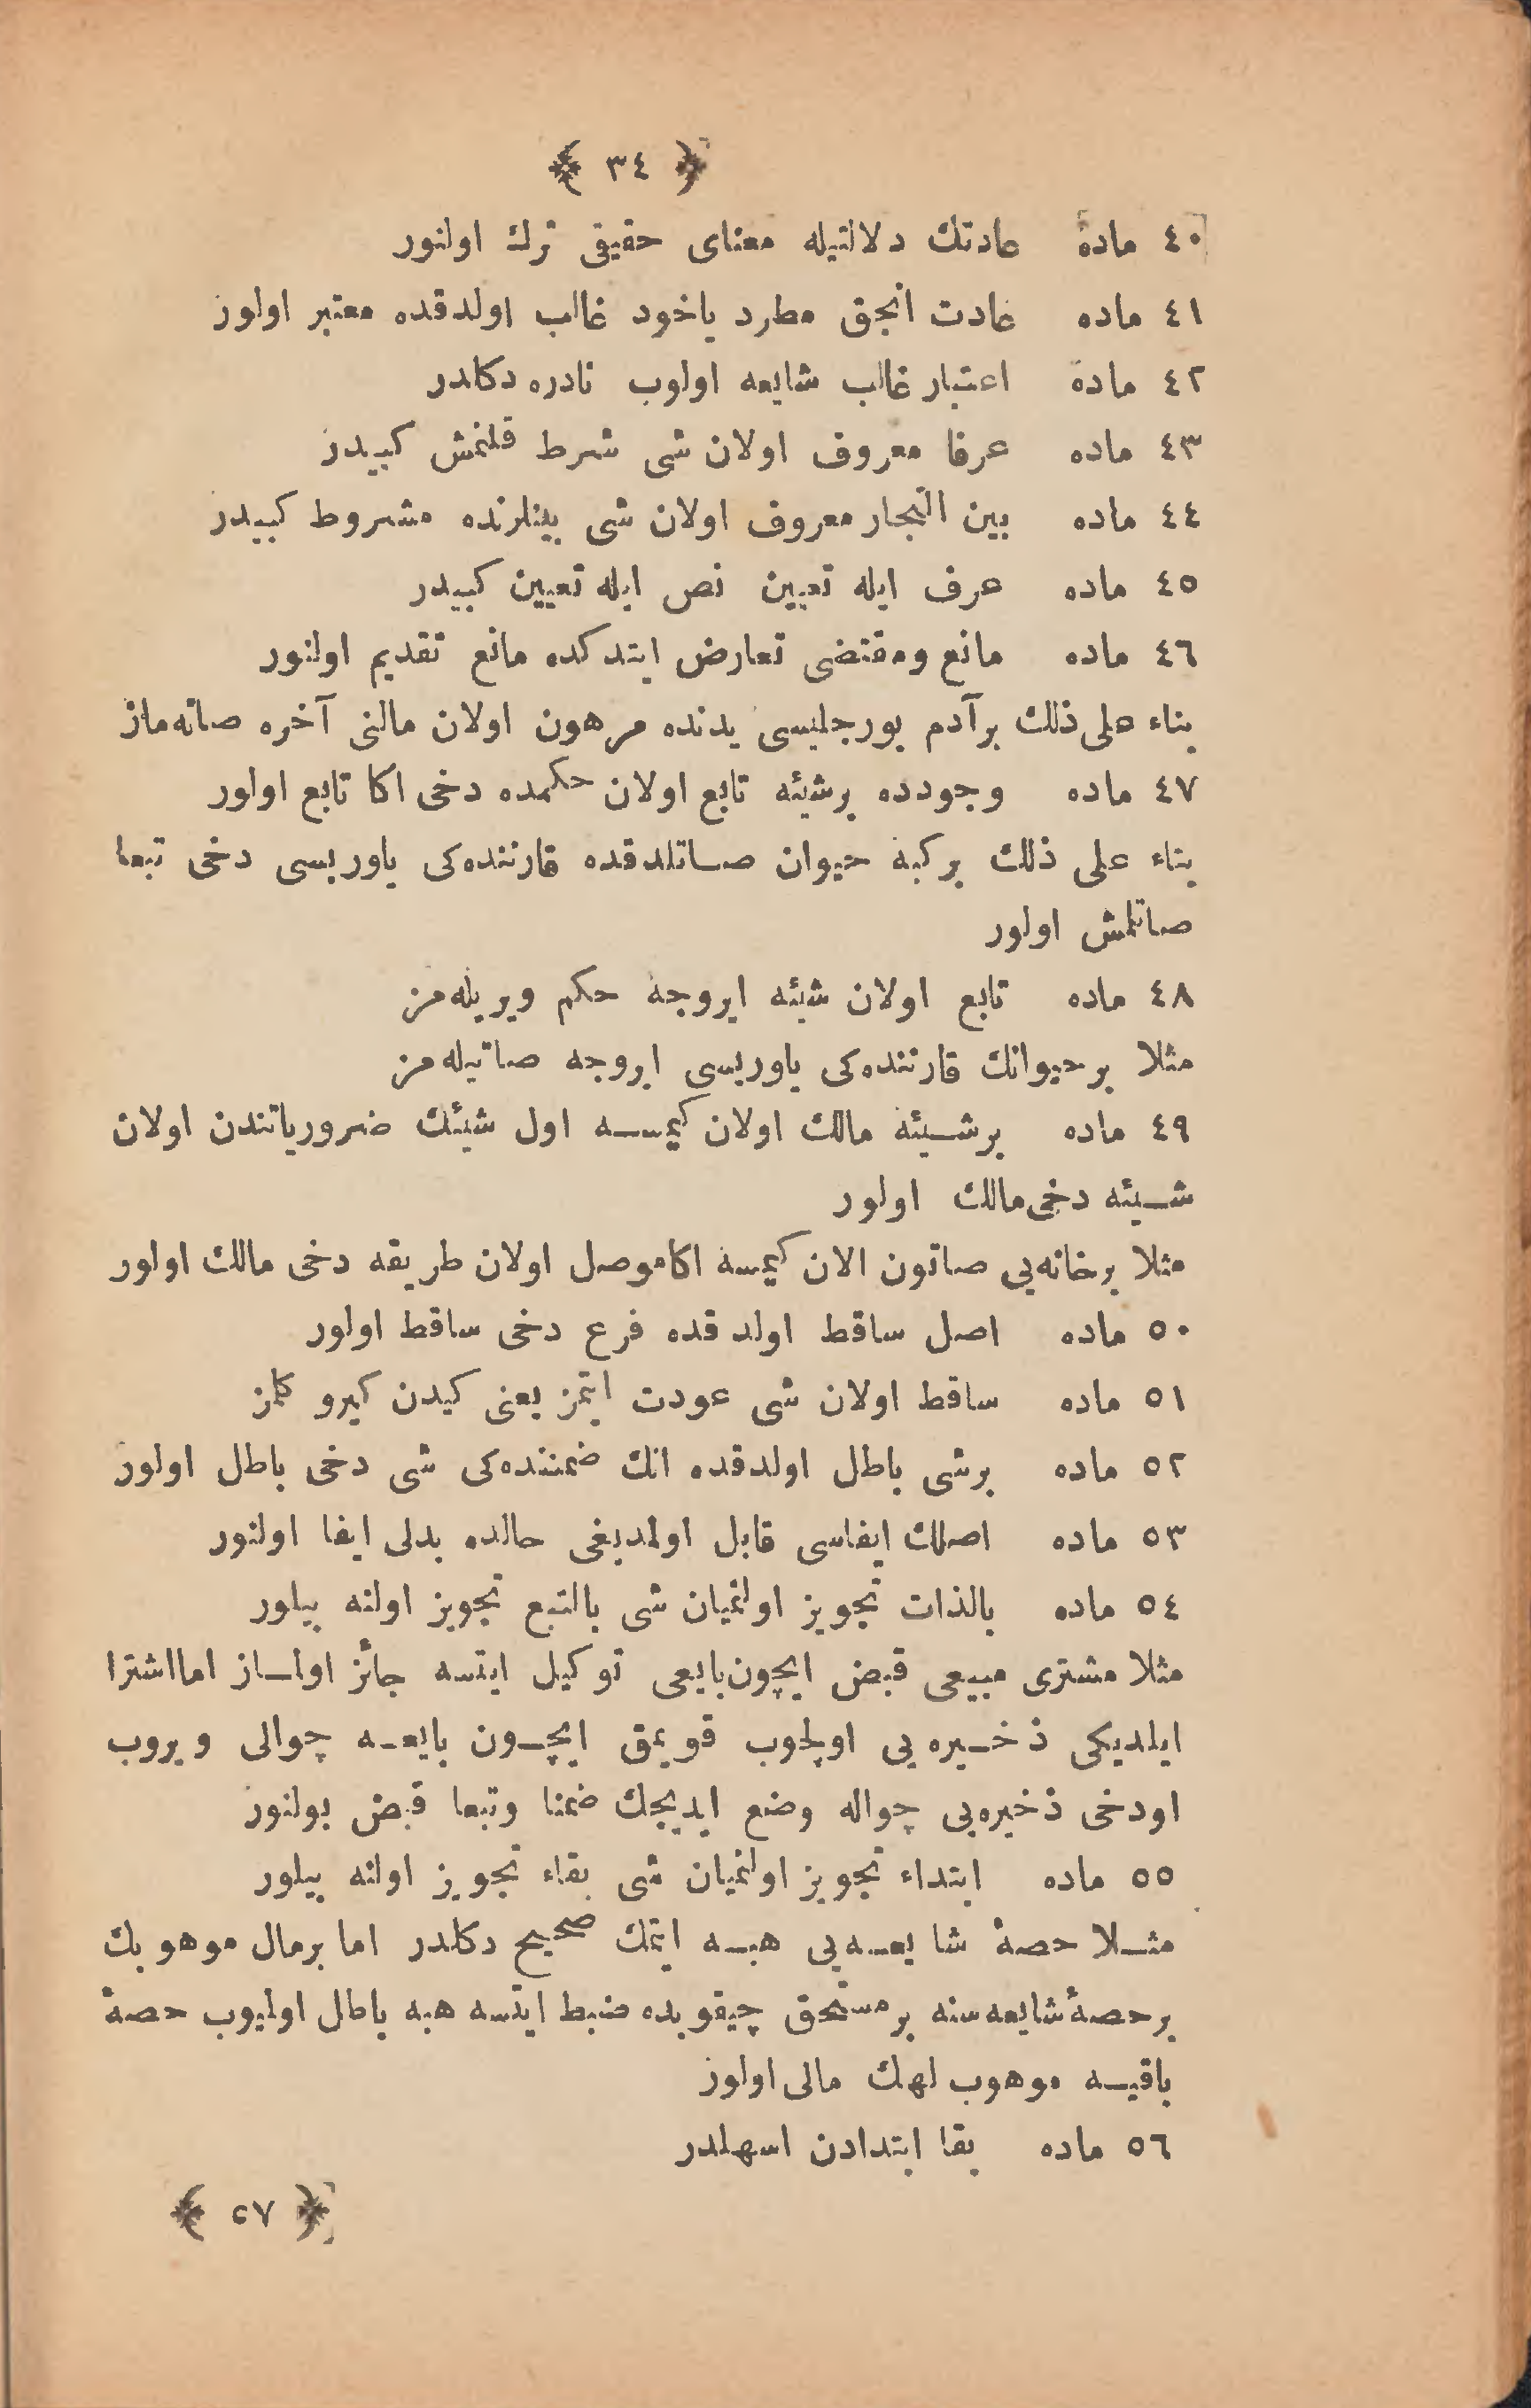 ﴿ ٣٤ ﴾
٤٠ ماده عادتك دلالتيله معناى حقيقى ترك اولنور
٤١ ماده عادت انجق مطرد ياخود غالب اولدقده معتبر اولور
٤٢ ماده اعتبار غالب شايعه اولوب نادره دكلدر
٤٣ ماده عرفا معروف اولان شى شرط قلنمش كبيدر
٤٤ ماده بين التجار معروف اولان شى بينلرنده مشروط كبيدر
٤٥ ماده عرف ايله تعيين نص ايله تعيين كبيدر
٤٦ ماده مانع ومقتضى تعارض ايتدكده مانع تقديم اولنور
بناء على ذلك برآدم بورجليسى يدنده مرهون اولان مالنى آخره صاته‌ماز
٤٧ ماده وجودده برشيئه تابع اولان حكمده دخى اكا تابع اولور
بناء على ذلك بركبه حيوان صاتلدقده قارننده‌كى ياوريسى دخى تبعا
صاتلمش اولور
٤٨ ماده تابع اولان شيئه ايروجه حكم ويريله‌مز
مثلا برحيوانك قارننده‌كى ياوريسى ايروجه صاتيله‌مز
٤٩ ماده برشيئه مالك اولان كيمسه اول شيئك ضرورياتندن اولان
شيئه دخى مالك اولور
مثلا برخانه‌يى صاتون الان كيمسه اكا موصل اولان طريقه دخى مالك اولور
٥٠ ماده اصل ساقط اولدقده فرع دخى ساقط اولور
٥١ ماده ساقط اولان شى عودت ايتمز يعنى كيدن كيرو كلمز
٥٢ ماده برشى باطل اولدقده انك ضمننده‌كى شى دخى باطل اولور
٥٣ ماده اصلك ايفاسى قابل اولمديغى حالده بدلى ايفا اولنور
٥٤ ماده بالذات تجويز اولنميان شى بالتبع تجويز اولنه بيلور
مثلا مشترى مبيعى قبض ايچون بايعى توكيل ايتسه جائز اولماز اما اشترا
ايلديكى ذخيره‌يى اولچوب قويمق ايچون بايعه چوالى ويروب
اودخى ذخيره‌يى چواله وضع ايديجك ضمنا وتبعا قبض بولنور
٥٥ ماده ابتداء تجويز اولنميان شى بقاء تجويز اولنه بيلور
مثلا حصهٔ شايعه‌يى هبه ايتمك صحيح دكلدر اما برمال موهوبك
برحصهٔ شايعه‌سنه برمستحق چيقوبده ضبط ايتسه هبه باطل اولميوب حصهٔ
باقيه موهوب لهك مالى اولور
٥٦ ماده بقا ابتدادن اسهلدر
﴿ ٥٧ ﴾